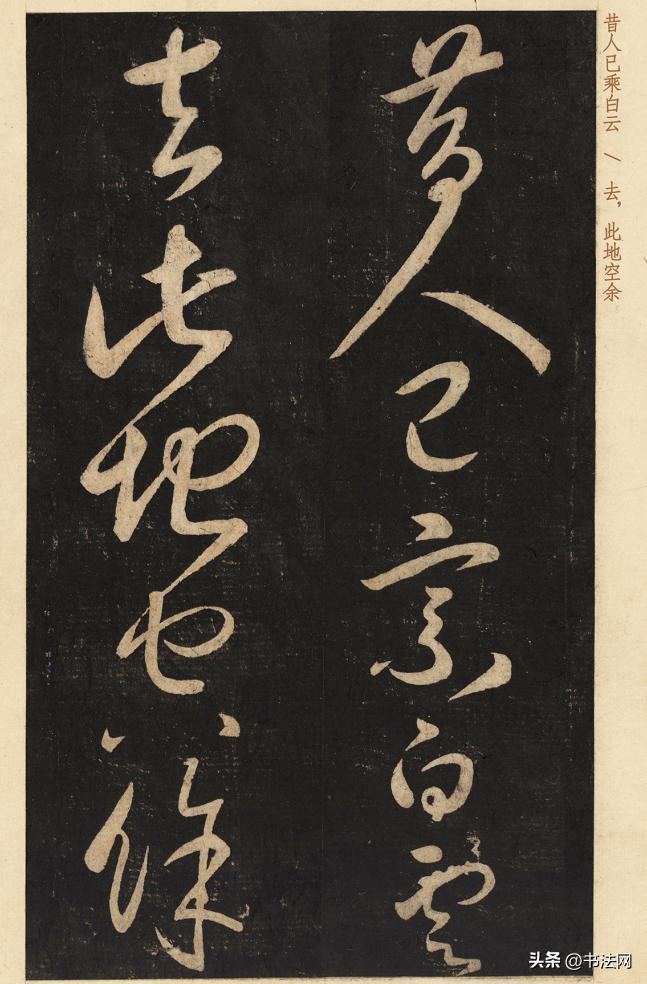 昔人已乘白云 \ 去，此地空余
昔人已乘白雲
去此地空餘
头条 @书法网